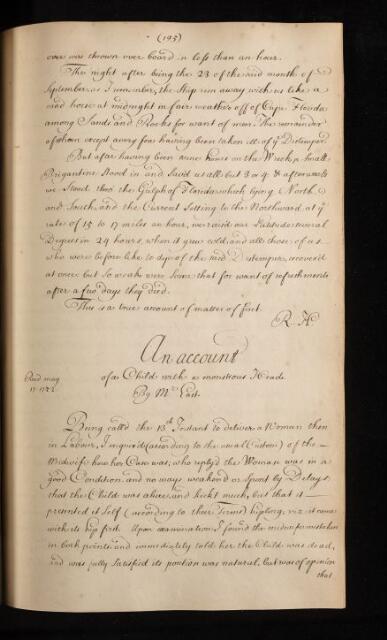 (195)
over was thrown over board in less than an hour.
The night after being the 23 of the said month of
September as I remember, the Ship run away with us like a
mad horse at midnight in fair weather off of Cape Florida
among Sands and Rocks for want of men. The remainder
of whom except a very few having been taken ill of yᵉ Distemper.
But after having been nine hours on the Wreck, a small
Brigantine stood in and saved us all but 3 or 4 & afterwards
we stood thro the Gulph of Florida which lying North
and South, and the Current setting to the Northward, at yᵉ
rate of 15 to 17 miles an hour, we raised our Latitude several
Degrees in 24 hours, when it grew cold, and all those of us
who were before like to dye of the said Distemper, recovered
at once but so weak were some that for want of refreshments
after a few days they died.
This is a true account of matter of fact.
R. H.
An account
Read may
17
of a Child with a monstrous Head.
By Mʳ
Being call'd the 13ᵗʰ Instant to deliver a Woman then
in Labour, I inquired (according to the usual Custom) of the
Midwife how her Case was, who reply'd the Woman was in a
good Condition, and no ways weakned or spent by Delays;
that the Child was alive, and kickt much, but that it
presented it self (according to their Terms) hipling, viz it came
with its hip first. Upon examination I found the midwife mistaken
in both points, and immediately told her the Child was dead,
and was fully satisfied its position was natural, but was of opinion
that